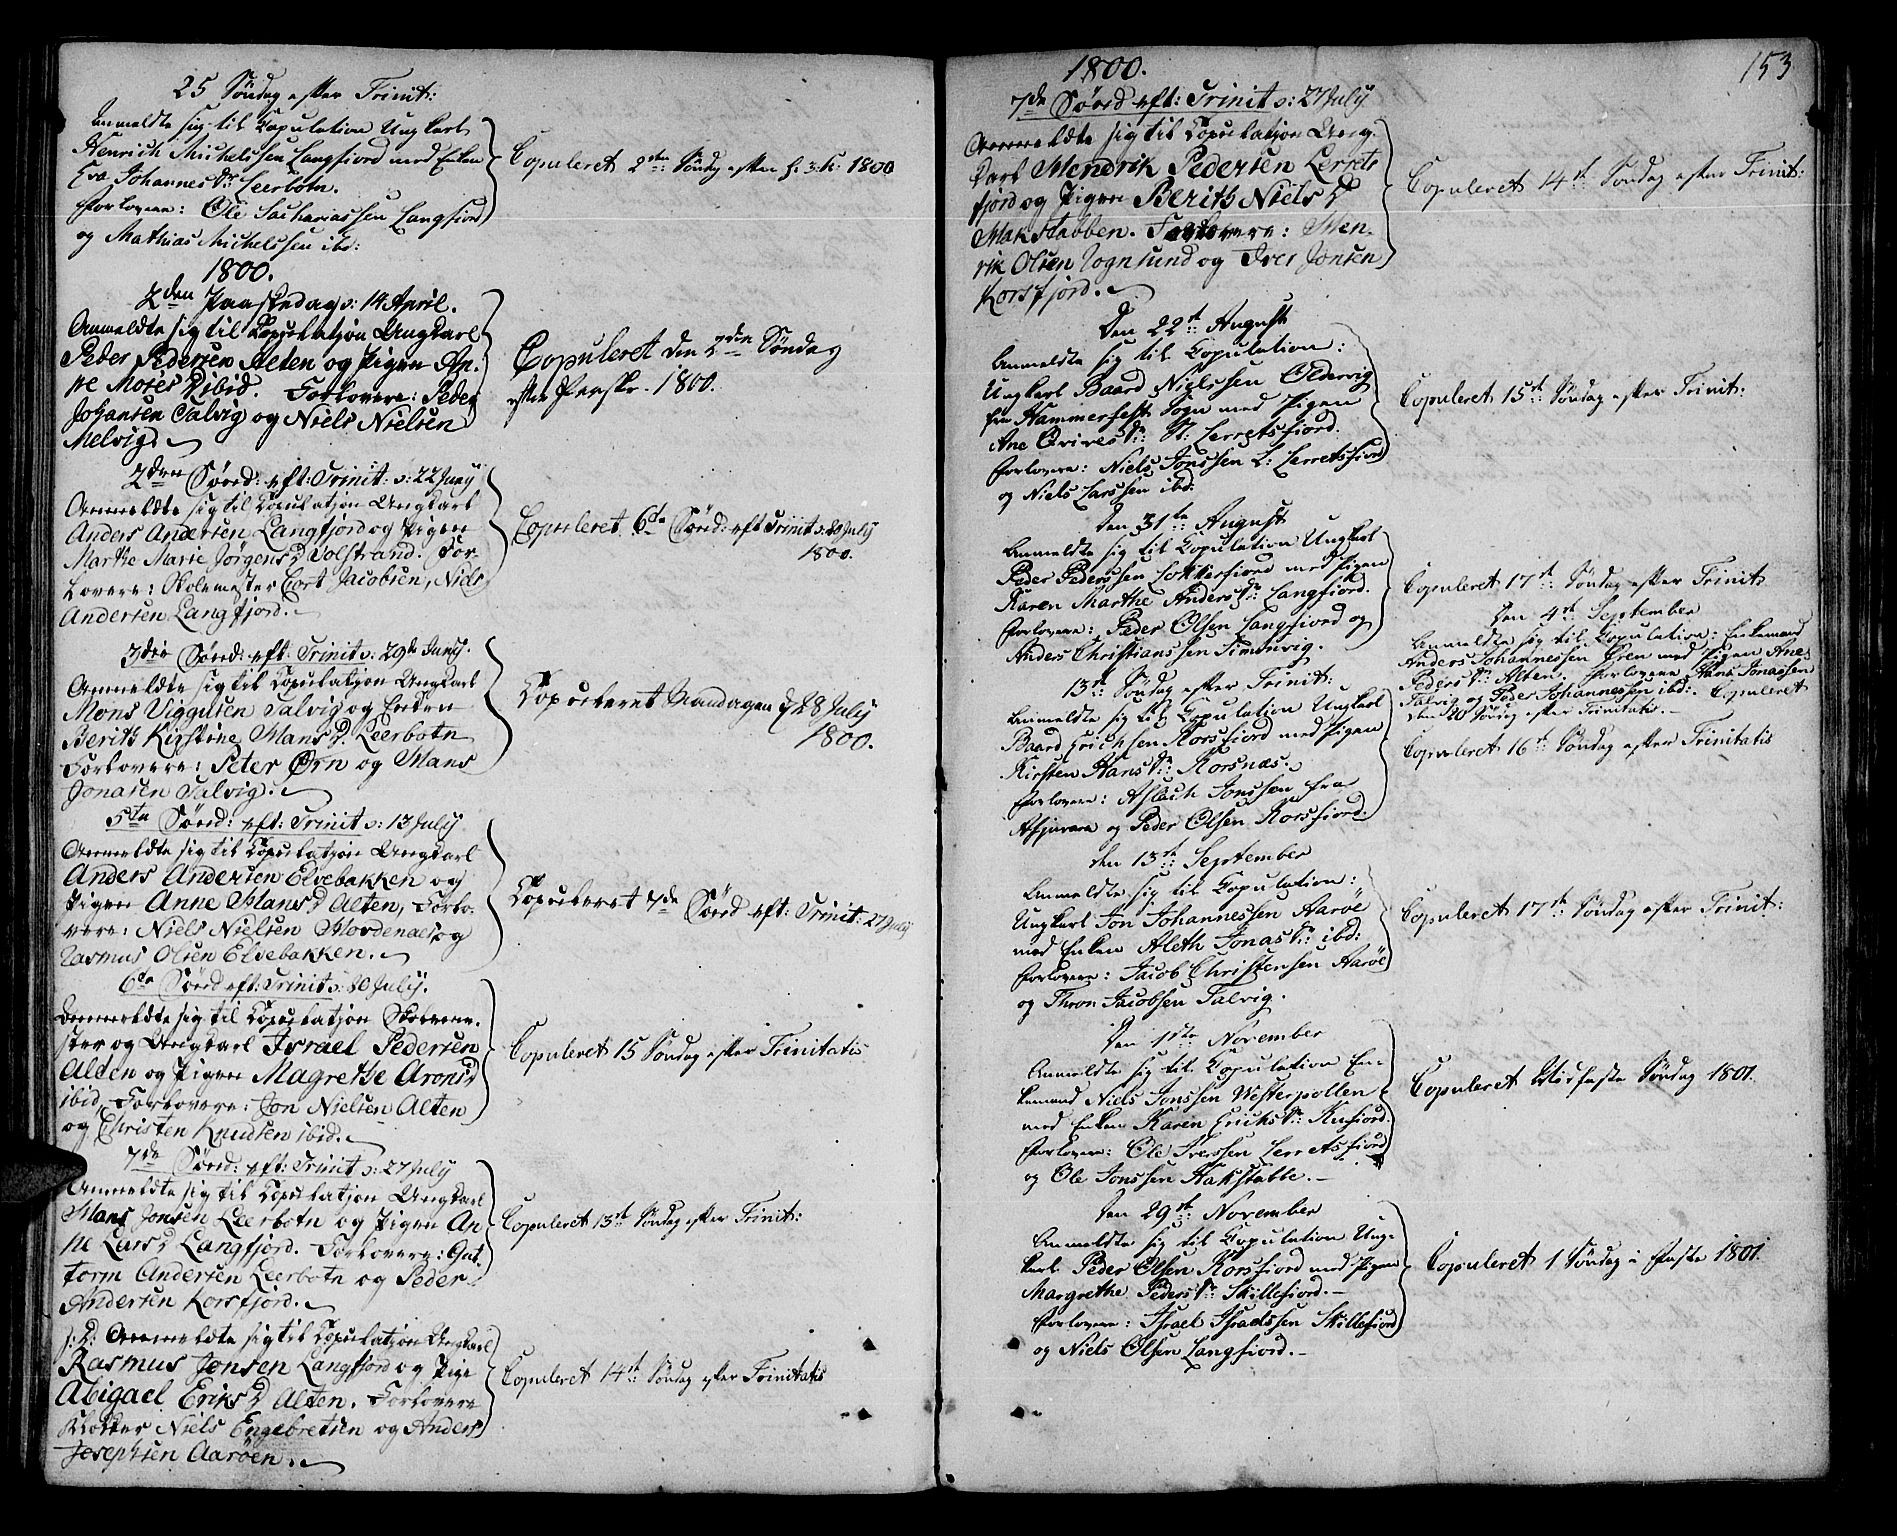 25 Søndag efter Trinit:
Anmeldte sig til Copulation Ungkarl
Henrich Michelssen Langfiord med Enken
Eva Johannesdr: Leerbotn.
Forlovere: Ole Sachariassen Langfiord
og Mathias Michelssen ibd:
Copuleret 2den Søndag efter h. 3 K. 1800
1800.
2den Paaskedag d: 14 April.
Anmeldte sig til Copulatjon Ungkarl
Peder Pedersen Alten og Pigen An-
ne Mosesd ibid. Forlovere: Peder
Johansen Talvig og Niels Nielsen
Melvig.
Copuleret den 2den Søndag
efter Paaske. 1800.
2den Sønd: eft: Trinit: d: 22 Juny
Anmeldte sig til Copulatjon Ungkarl
Anders Andersen Langfjord og Pigen
Marthe Marie Jørgensd Volstrand. For-
lovere: Skolemester Cort Jacobsen, Niels
Andersen Langfjord.
Copuleret 6te Sønd: eft Trinit d: 20 July
1800.
3die Sønd: eft: Trinit d: 29de Juny.
Anmeldte sig til Copulatjon Ungkarl
Mons Viggusen Talvig og Enken
Berith Kirstine Mansd. Leerbotn
Forlovere: Peter Ørn og Mans
Jonasen Talvig.
Copuleret Mandagen d 28 July
1800.
5te Sønd: eft: Trinit d: 13 July
Anmeldte sig til Copulatjon Ungkarl
Anders Andersen Elvebakken og
Pigen Anne Hansd Alten, Forlo-
vere: Niels Nielsen Hovdenaes og
Rasmus Olsen Elvebakken.
Copuleret 7de Sønd eft: Trinit: 27 July
6te Sønd eft: Trinit d: 20 July.
Anmeldte sig til Copulatjon Skoleme-
ster og Ungkarl Israel Pedersen
Alten og Pigen Magrethe Aronsd
ibid, Forlovere: Jon Nielsen Alten
og Christen Knudsen ibid.
Copuleret 15 Søndag efter Trinitatis
7de Sønd: eft: Trinit d: 27 July
Anmeldte sig til Copulatjon Ungkarl
Hans Jonsen Leerbotn og Pigen An-
ne Larsd Langfjord. Forlovere: Gut-
torm Andersen Leerbotn og Peder
Andersen Korsfjord.
Copuleret 13de Søndag efter Trinit:
s: D: Anmeldte sig til Copulatjon Ungkarl
Rasmus Jonsen Langfjord og Pige
Abigael Eriksd Alten. Forlovere
Klokker Niels Engebretsen og Anders
Josephsen Aarøen.
Copuleret 14de Søndag efter Trinitatis
153
1800.
7de Sønd eft: Trinit d: 27 July
Anmeldte sig til Copulatjon Ung-
karl Hendrik Pedersen Lerrets
fjord og Pigen Berith Nielsd
Hakstabben. Forlovere: Hen-
rik Olsen Rognsund og Iver Jonsen
Korsfjord.
Copuleret 14de Søndag efter Trinit:
Den 22de August
Anmeldte sig til Copulation:
Ungkarl Baard Nielssen Oldervig
fra Hammerfest Sogn med Pigen
Ane Brites dr: St: Lerretsfiord.
Forlovere: Niels Jonssen L: Lerretsfiord
og Niels Larssen ibd:
Copuleret 15de Søndag efter Trinit:
Den 31te August
Anmeldte sig til Copulation Ungkarl
Peder Pederssen Lokkerfiord med Pigen
Karen Marthe Andersdr: Langfiord.
Forlovere: Peder Olsen Langfiord og
Anders Christianssen Simanvig.
Copuleret 17de Søndag efter Trinit
Den 4de September
Anmeldte sig til Copulation: Enkemand
Anders Johannessen Øren med Pigen Ane
Pedersdr: Alten. Forlovere Hans Jonassen
Talvig og Peder Johannessen ibd: Copuleret
den 20 Søndag efter Trinitatis.
13de Søndag efter Trinit:
Anmeldte sig til Copulation Ungkarl
Baard Erichsen Korsfiord med Pigen
Kirsten Hansdr: Korsnæs.
Forlovere: Aslach Jonssen fra
Afjuvara og Peder Olsen Korsfiord.
Copuleret 16de Søndag efter Trinitatis
Den 13de September
Anmeldte sig til Copulation:
Ungkarl Jon Johannessen Aarøe
med Enken Aleth Jonasdr: ibd:
Forlovere: Jacob Christensen Aarøe
og Thron Jacobsen Talvig.
Copuleret 17de Søndag efter Trinit:
Den 1ste November
Anmeldte sig til Copulation En-
kemand Niels Jonssen Westerpollen
med Enken Karen Erichsdr: Kufiord.
Forlovere: Ole Iverssen Lerretsfiord
og Ole Jonssen Hakstabbe.
Copuleret Midfaste Søndag 1801.
Den 29de November
Anmeldte sig til Copulation Ung-
karl Peder Olsen Korsfiord med Pigen
Margrethe Pedersdr: Skillefiord.
Forlovere: Israel Israelssen Skillefiord
og Niels Olsen Langfiord.
Copuleret 1 Søndag i Faste 1801.